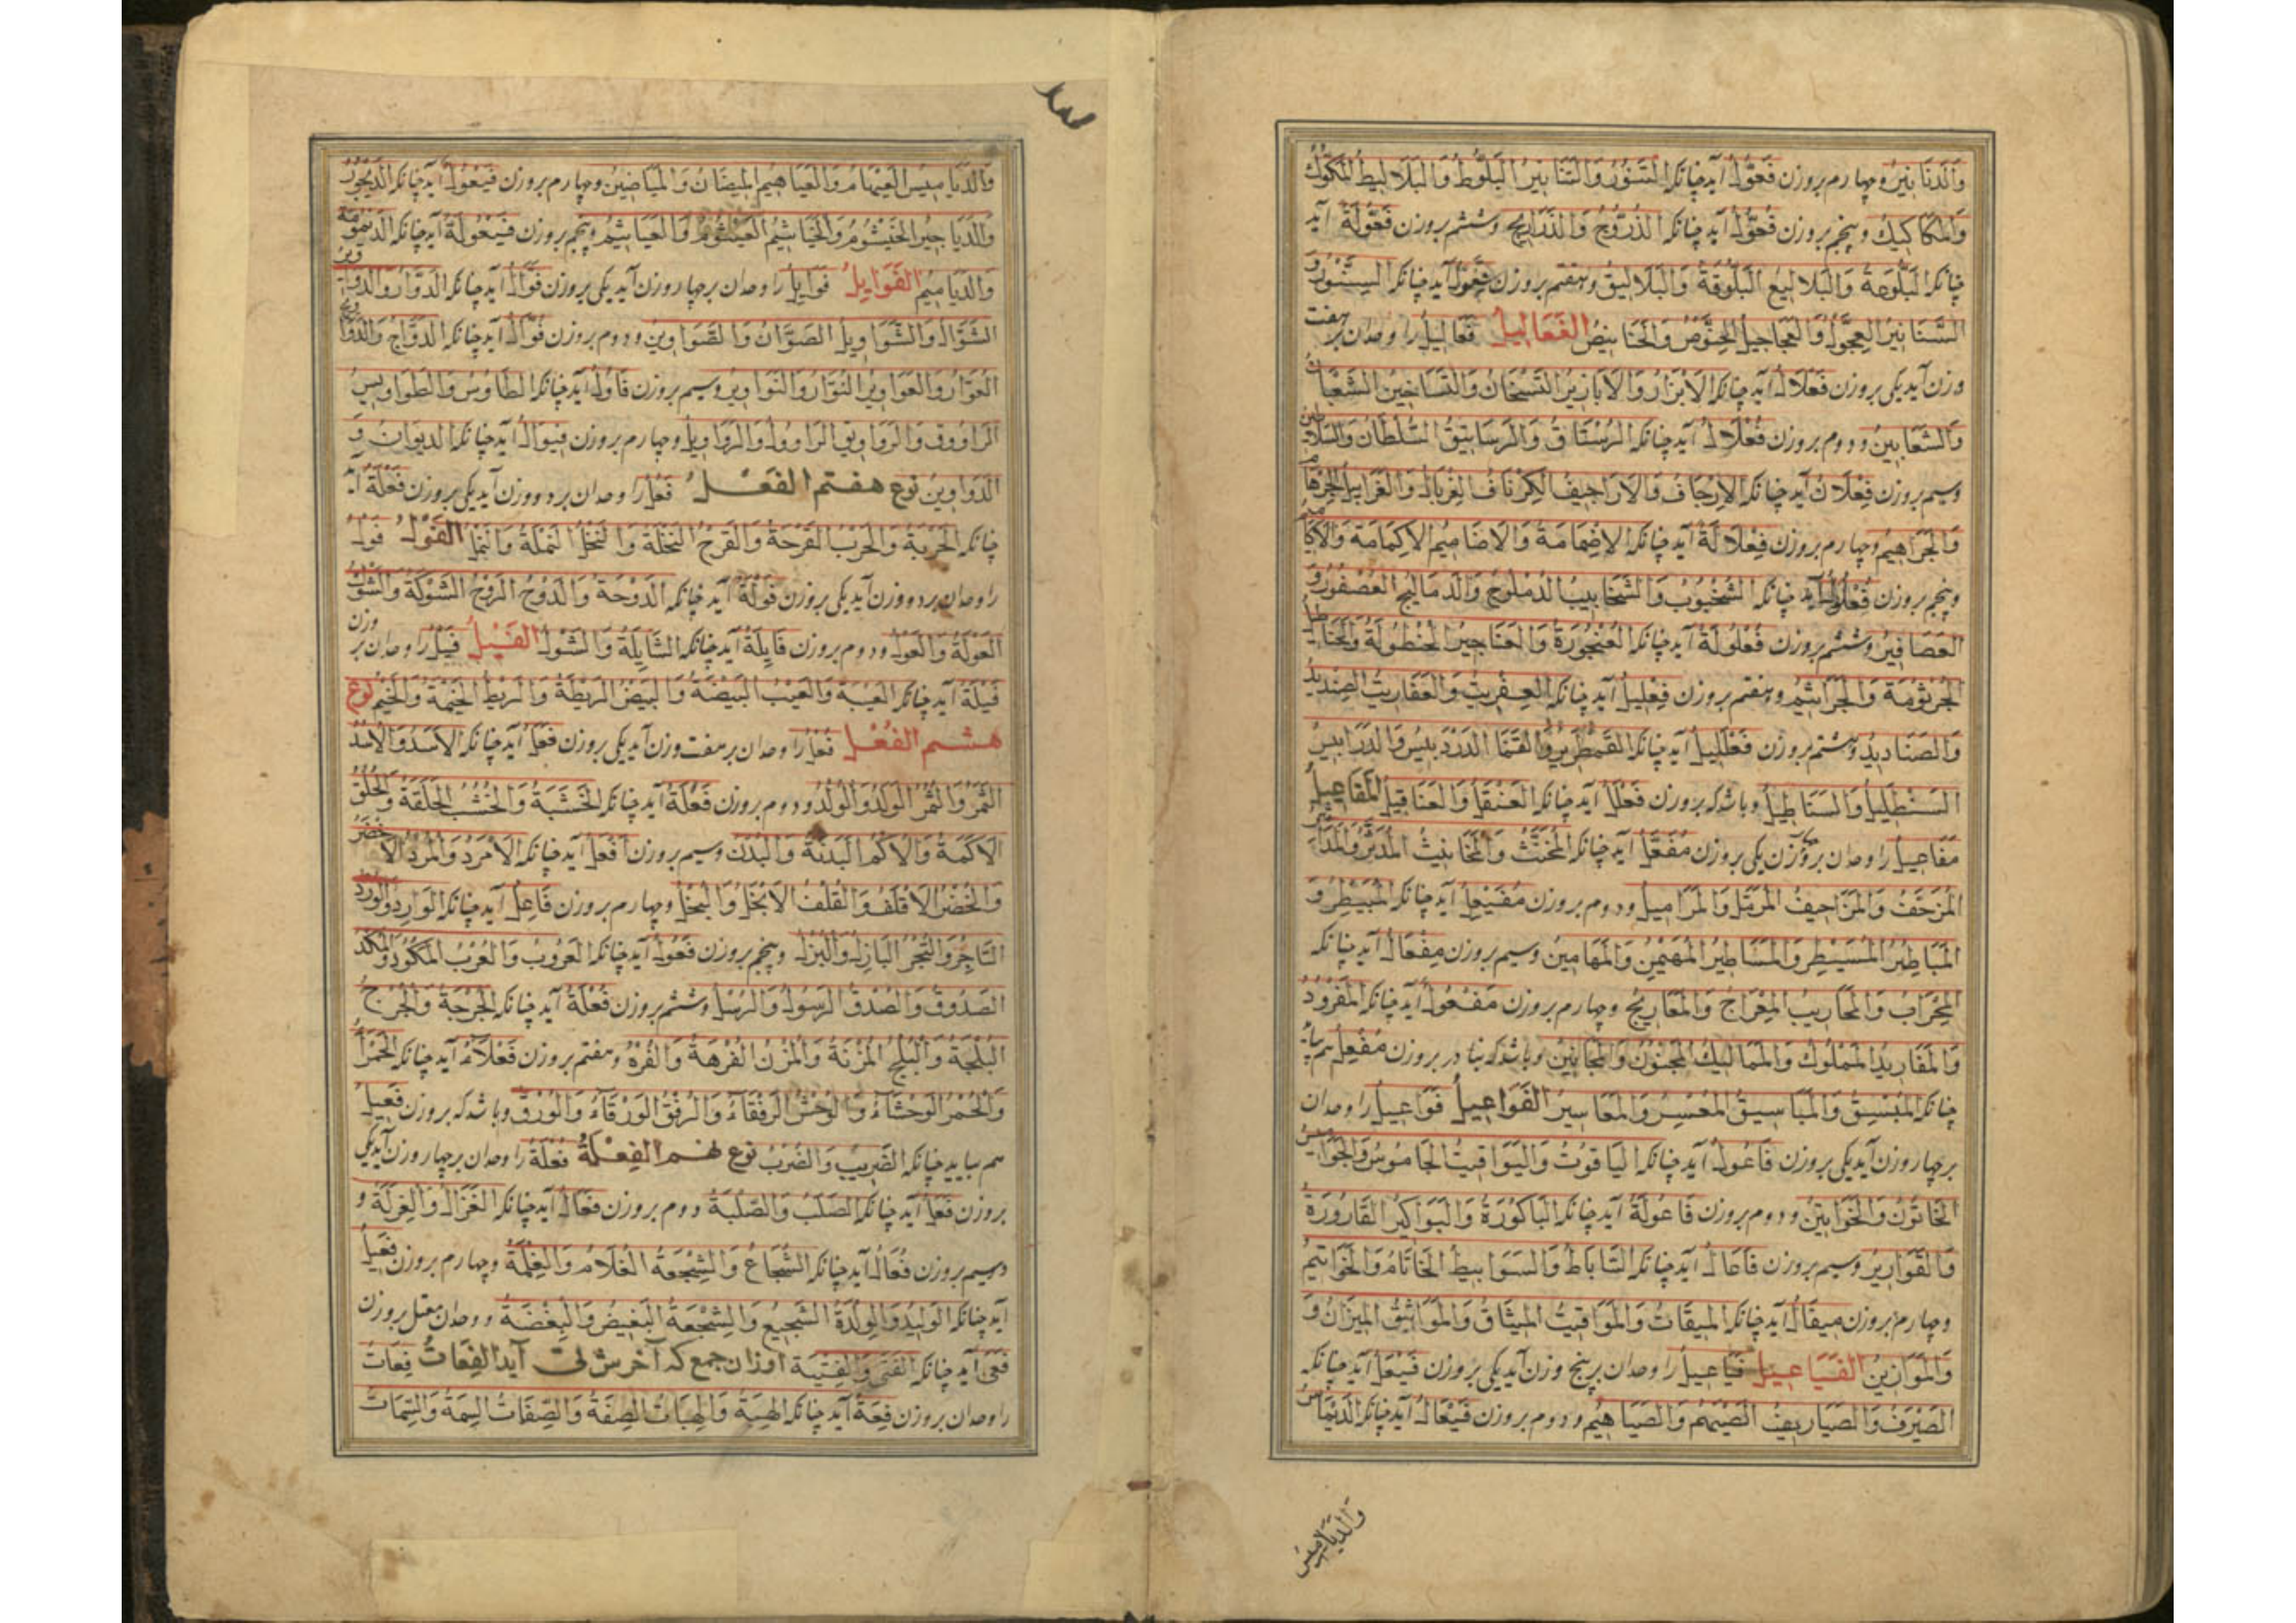 وَالدَنَانِیرُ و چهارم بر وزن فَعُّولٌ آید چنانکه التَنُّورُ وَالتَنَانِیرُ البَلُّوطُ وَالبَلَالِیطُ المَکُّوكُ
وَالمَکَاکِیكُ و پنجم بر وزن فُعُّولٌ آید چنانکه الذُرُّوحُ وَالذَرَارِیحُ و ششم بر وزن فَعُّولَةٌ آید
چنانکه البَلُّوعَةُ وَالبَلَالِیعُ البَلُّوقَةُ وَالبَلَالِیقُ و هفتم بر وزن فِعَّولٌ آید چنانکه السِنَّورُ وَ
السَّنَانِیرُ العِجَّولُ وَالعَجَاجِیلُ الخِنَّوْصُ وَالخَنَانِیصُ الفَعَالِیلُ فَعَالِیلُ را وحدان بر هفت
وزن آید یکی بر وزن فَعْلَالٌ آید چنانکه الاَبْزَارُ وَالاَبَازِیرُ التَسْخَانُ وَالتَسَاخِینُ الشَعْبَانُ
وَالشَعَابِینُ و دوم بر وزن فُعْلَالٌ آید چنانکه الرُسْتَاقُ وَالرَسَاتِیقُ السُّلْطَانُ وَالسَلَاطِینُ
وسیم بر وزن فِعْلَالٌ آید چنانکه الاِرْجَافُ وَالاَرَاجِیفُ الکِرْنَافُ الغِرْبَالُ وَالغَرَابِیلُ الجِرْهَامُ
وَالجَرَاهِیمُ و چهارم بر وزن فِعْلَالَةٌ آید چنانکه الاِضْمَامَةُ وَالاَضَامِیمُ الاِکْمَامَةُ وَالاَکَامِیمُ
و پنجم بر وزن فُعْلُولٌ آید چنانکه الشُخْبُوبُ وَالشَخَابِیبُ الدُمْلُوجُ وَالدَمَالِیجُ العُصْفُورُ وَ
العَصَافِیرُ و ششم بر وزن فُعْلُولَةٌ آید چنانکه العُنْجُورَةُ وَالعَنَاجِیرُ الحُنْطُولَةُ وَالحَنَاطِیلُ
الجُرْثُومَةُ وَالجَرَاثِیمُ و هفتم بر وزن فِعْلِیلٌ آید چنانکه العِفْرِیتُ وَالعَفَارِیتُ الصِنْدِیدُ
وَالصَنَادِیدُ و هشتم بر وزن فَعْلَلِیلٌ آید چنانکه القَمْطَرِیرُ الدَرْدَبِیسُ وَالدَرَابِیسُ
و باشد که بر وزن فَعْلَلٌ آید چنانکه العَنْقَلُ وَالعَنَاقِیلُ المَفَاعِیلُ
مَفَاعِیلُ را وحدان بر وزن یکی بر وزن مُفَعَّلٌ آید چنانکه المُخَنَّثُ وَالمَخَانِیثُ المُدَثِّرُ
المُزَحَّفُ وَالمَزَاحِیفُ المُرَمَّلُ وَالمَرَامِیلُ و دوم بر وزن مُفَیْعِلٌ آید چنانکه المُبَیْطِرُ وَ
المَبَاطِیرُ المُسَیْطِرُ وَالمَسَاطِیرُ المُهَیْمِنُ وَالمَهَامِینُ وسیم بر وزن مِفْعَالٌ آید چنانکه
المِحْرَابُ وَالمَحَارِیبُ المِعْرَاجُ وَالمَعَارِیجُ و چهارم بر وزن مَفْعُولٌ آید چنانکه المَفْرُودُ
وَالمَفَارِیدُ المَملُوكُ وَالمَمَالِیكُ المَجْنُونُ وَالمَجَانِینُ و باشد که بنادر بر وزن مُفْعِلٌ هم بیاید
چنانکه المُبْسِقُ وَالمَبَاسِیقُ المُعْسِرُ وَالمَعَاسِیرُ الفَوَاعِیلُ فَوَاعِیلُ را وحدان
بر چهار وزن آید یکی بر وزن فَاعُولٌ آید چنانکه الیَاقُوتُ وَالیَوَاقِیتُ الجَامُوسُ وَالجَوَامِیسُ
الخَاتُونُ وَالخَوَاتِینُ و دوم بر وزن فَاعُولَةٌ آید چنانکه البَاکُورَةُ وَالبَوَاکِیرُ القَارُورَةُ
وَالقَوَارِیرُ وسیم بر وزن فَاعَالٌ آید چنانکه السَّابَاطُ وَالسَوَابِیطُ الخَاتَامُ وَالخَوَاتِیمُ
و چهارم بر وزن مِیفَالٌ آید چنانکه المِیقَاتُ وَالمَوَاقِیتُ المِیثَاقُ وَالمَوَاثِیقُ المِیزَانُ وَ
وَالمَوَازِینُ الفَیَاعِیلُ فَیَاعِیلُ را وحدان بر پنج وزن آید یکی بر وزن فَیْعَلٌ آید چنانکه
الصَیْرَفُ وَالصَیَارِیفُ الصَیْهَمُ وَالصَیَاهِیمُ و دوم بر وزن فَیْعَالٌ آید چنانکه الدَیْمَاسُ
وَالدَیَامِیسُ
وَالدَیَامِیسُ العَیْهَامُ وَالعَیَاهِیمُ و چهارم بر وزن فَیْعُولٌ آید چنانکه الدَیْجُورُ
وَالدَیَاجِیرُ الخَیْشُومُ وَالخَیَاشِیمُ العَیْشُومُ وَالعَیَاشِیمُ و پنجم بر وزن فَیْعُولَةٌ آید چنانکه الدَیْمُومَةُ
وَالدَیَامِیمُ الفَوَاوِیلُ را وحدان بر چهار وزن آید یکی بر وزن فَوَّالٌ آید چنانکه الدَوَّارُ وَالدَوَاوِیرُ
الشَوَّالُ وَالشَوَاوِیلُ الصَوَّانُ وَالصَوَاوِینُ و دوم بر وزن فُوَّالٌ آید چنانکه الدُوَّاجُ وَالدَوَاوِیجُ
العُوَّارُ وَالعَوَاوِیرُ النُوَّارُ وَالنَوَاوِیرُ وسیم بر وزن فَاوُلٌ آید چنانکه الطَاوُسُ وَالطَوَاوِیسُ
الرَاوُوقُ وَالرَوَاوِیقُ الرَاوُولُ وَالرَوَاوِیلُ و چهارم بر وزن فِیوَالٌ آید چنانکه الدِیوَانُ وَ
الدَوَاوِینُ نوع هفتم الفَعْلُ فَعْلٌ را وحدان بر دو وزن آید یکی بر وزن فَعْلَةٌ آید
چنانکه الحَرْبَةُ وَالحَرْبُ القَرْحَةُ وَالقَرْحُ النَخْلَةُ وَالنَخْلُ النَمْلَةُ وَالنَمْلُ الفَوْلُ فَوْلٌ
را وحدان بر دو وزن آید یکی بر وزن فَوْلَةٌ آید چنانکه الدَوْحَةُ وَالدَوْحُ الشَوْکَةُ وَالشَوْكُ
العَوْلَةُ وَالعَوْلُ و دوم بر وزن فَایِلَةٌ آید چنانکه الشَایِلَةُ وَالشَوْلُ الفَیْلُ فَیْلٌ را وحدان بر وزن
فَیْلَةٌ آید چنانکه العَیْبَةُ وَالعَیْبُ البَیْضَةُ وَالبَیْضُ الرَیْطَةُ وَالرَیْطُ الخَیْمَةُ وَالخَیْمُ نوع
هشتم الفُعْلُ فُعْلٌ را وحدان بر هفت وزن آید یکی بر وزن فَعَلٌ آید چنانکه الاَسَدُ وَالاُسْدُ
الثَمَرُ وَالثُمْرُ الوَلَدُ وَالوُلْدُ و دوم بر وزن فَعَلَةٌ آید چنانکه الخَشَبَةُ وَالخُشْبُ الحَلَقَةُ وَالحُلْقُ
الاَکَمَةُ وَالاُکْمُ البَدَنَةُ وَالبُدْنُ وسیم بر وزن اَفْعَلُ آید چنانکه الاَمْرَدُ وَالمُرْدُ الاَخْضَرُ
وَالخُضْرُ الاَقْلَفُ وَالقُلْفُ الاَبْخَلُ وَالبُخْلُ و چهارم بر وزن فَاعِلٌ آید چنانکه الوَارِدُ وَالوُرْدُ
التَاجِرُ وَالتُجْرُ البَازِلُ وَالبُزْلُ و پنجم بر وزن فَعُولٌ آید چنانکه العَرُوبُ وَالعُرْبُ المَکُودُ وَالمُکْدُ
الصَدُوقُ وَالصُدْقُ الرَسُولُ وَالرُسْلُ و ششم بر وزن فُعْلَةٌ آید چنانکه الحُرْجَةُ وَالحُرْجُ
البُلْجَةُ وَالبُلْجُ المُزْنَةُ وَالمُزْنُ الفُرْهَةُ وَالفُرْهُ و هفتم بر وزن فَعْلَاءُ آید چنانکه الحَمْرَاءُ
وَالحُمْرُ الوَحْشَاءُ وَالوُحْشُ الرَفْقَاءُ وَالرُفْقُ الوَرْقَاءُ وَالوُرْقُ و باشد که بر وزن فَعِیلٌ
هم بیاید چنانکه الضَرِیبُ وَالضُرْبُ نوع نهم الفِعْلَةُ فِعْلَةٌ را وحدان بر چهار وزن آید یکی
بر وزن فَعَلٌ آید چنانکه الصَلَبُ وَالصِلْبَةُ و دوم بر وزن فَعَالٌ آید چنانکه الغَزَالُ وَالغِزْلَةُ و
وسیم بر وزن فُعَالٌ آید چنانکه الشُجَاعُ وَالشِجْعَةُ الغُلَامُ وَالغِلْمَةُ و چهارم بر وزن فَعِیلٌ
آید چنانکه الوَلِیدُ وَالوِلْدَةُ الشَجِیعُ وَالشِجْعَةُ البَغِیضُ وَالبِغْضَةُ و وحدان معتل بر وزن
فَعَی آید چنانکه الفَتَی وَالفِتْیَةُ اوزان جمع که آخرش ات آید الفِعَاتُ فِعَاتٌ
را وحدان بر وزن فِعَةٌ آید چنانکه الهِبَةُ وَالهِبَاتُ الصِفَةُ وَالصِفَاتُ السِمَةُ وَالسِمَاتُ